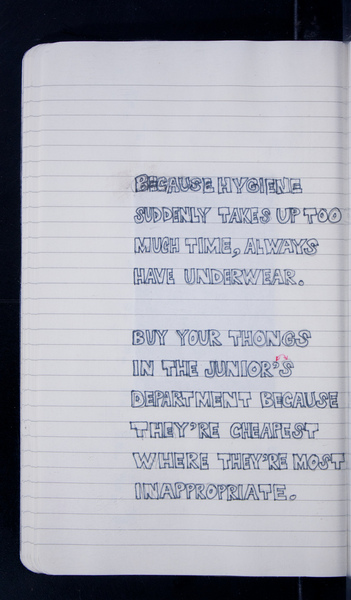 BECAUSE HYGIENE
SUDDENLY TAKES UP TOO
MUCH TIME, ALWAYS
HAVE UNDERWEAR.
BUY YOUR THONGS
IN THE JUNIOR'S
DEPARTMENT BECAUSE
THEY'RE CHEAPEST
WHERE THEY'RE MOST
INAPPROPRIATE.